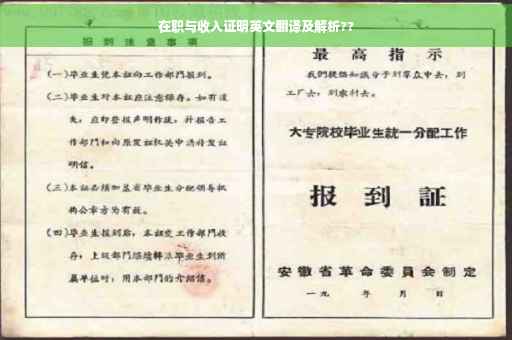 在职与收入证明英文翻译及解析??
报到注意事项
(一)毕业生凭本证向工作部门报到。
(二)毕业生对本证应注意保存。如有遗
失,应即登报声明作废,并报告工
作部门和向原发证机关申请补发证
明信。
(三)本证必须加盖省毕业生分配领导机
构公章方为有效。
(四)毕业生报到后,本证交工作部门收
存,上级部门给转派毕业生到所
属单位时,用本部门的介绍信。
最高指示
我们提倡知识分子到群众中去,到
工厂去,到农村去。
大专院校毕业生统一分配工作
报到証
安徽省革命委員会制定
一九 年 月 日